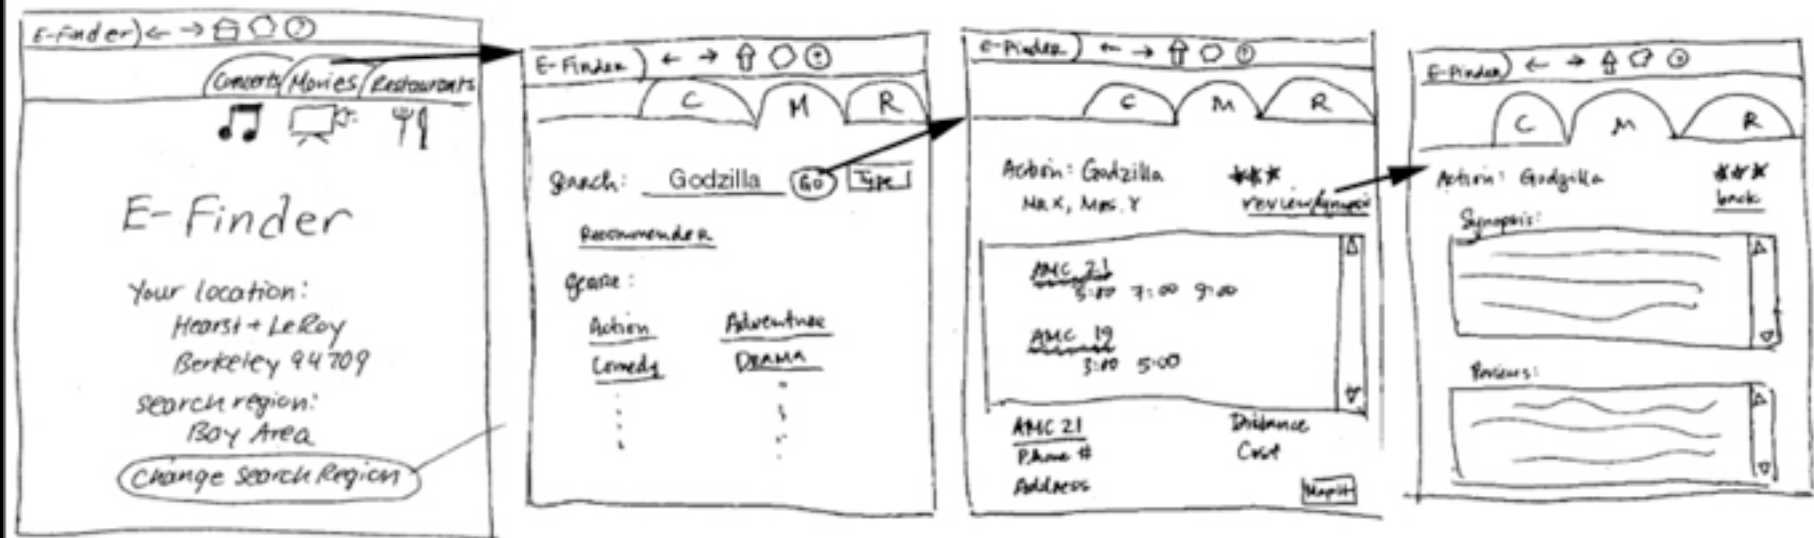 E-Finder
Concerts Movies Restaurants
E-Finder
Your location:
Hearst + LeRoy
Berkeley 94709
search region:
Bay Area
Change Search Region
E-Finder
C M R
Search: Godzilla GO Type
Recommender
Genre:
Action Adventure
Comedy DRAMA
E-Finder
C M R
Action: Godzilla ***
Mr. X, Mrs. Y review/synopsis
AMC 21
5:00 7:00 9:00
AMC 19
3:00 5:00
AMC 21 Distance
Phone # Cost
Address MapIt
E-Finder
C M R
Action: Godzilla ***
back
Synopsis:
Reviews: